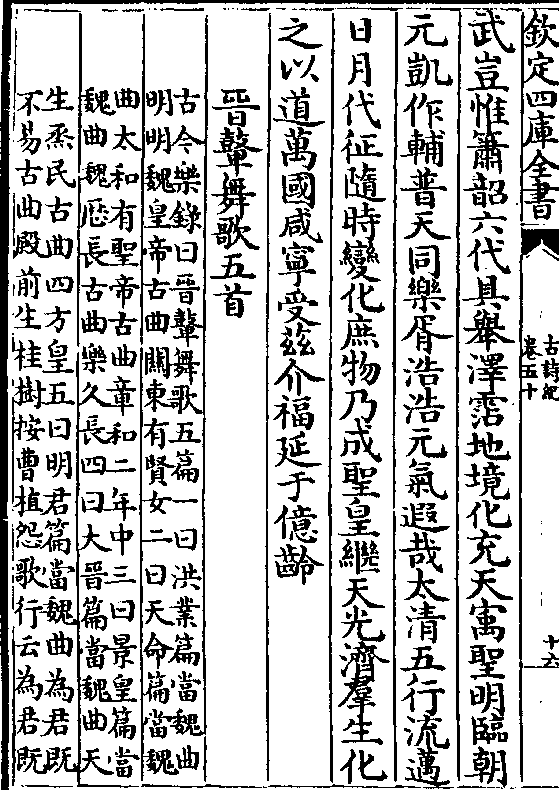 欽定四庫全書
古詩紀
卷五十
十六
武豈惟簫韶六代具舉澤霑地境化充天寓聖明臨朝
元凱作輔普天同樂胥浩浩元氣遐哉太清五行流邁
日月代征隨時變化庶物乃成聖皇繼天光濟羣生化
之以道萬國咸寧受茲介福延于億齡
晉鼙舞歌五首
古今樂錄曰晉鼙舞歌五篇一曰洪業篇當魏曲
明明魏皇帝古曲關東有賢女二曰天命篇當魏
曲太和有聖帝古曲章和二年中三曰景皇篇當
魏曲魏歷長古曲樂久長四曰大晉篇當魏曲天
生烝民古曲四方皇五曰明君篇當魏曲為君既
不易古曲殿前生桂樹按曹植怨歌行云為君既